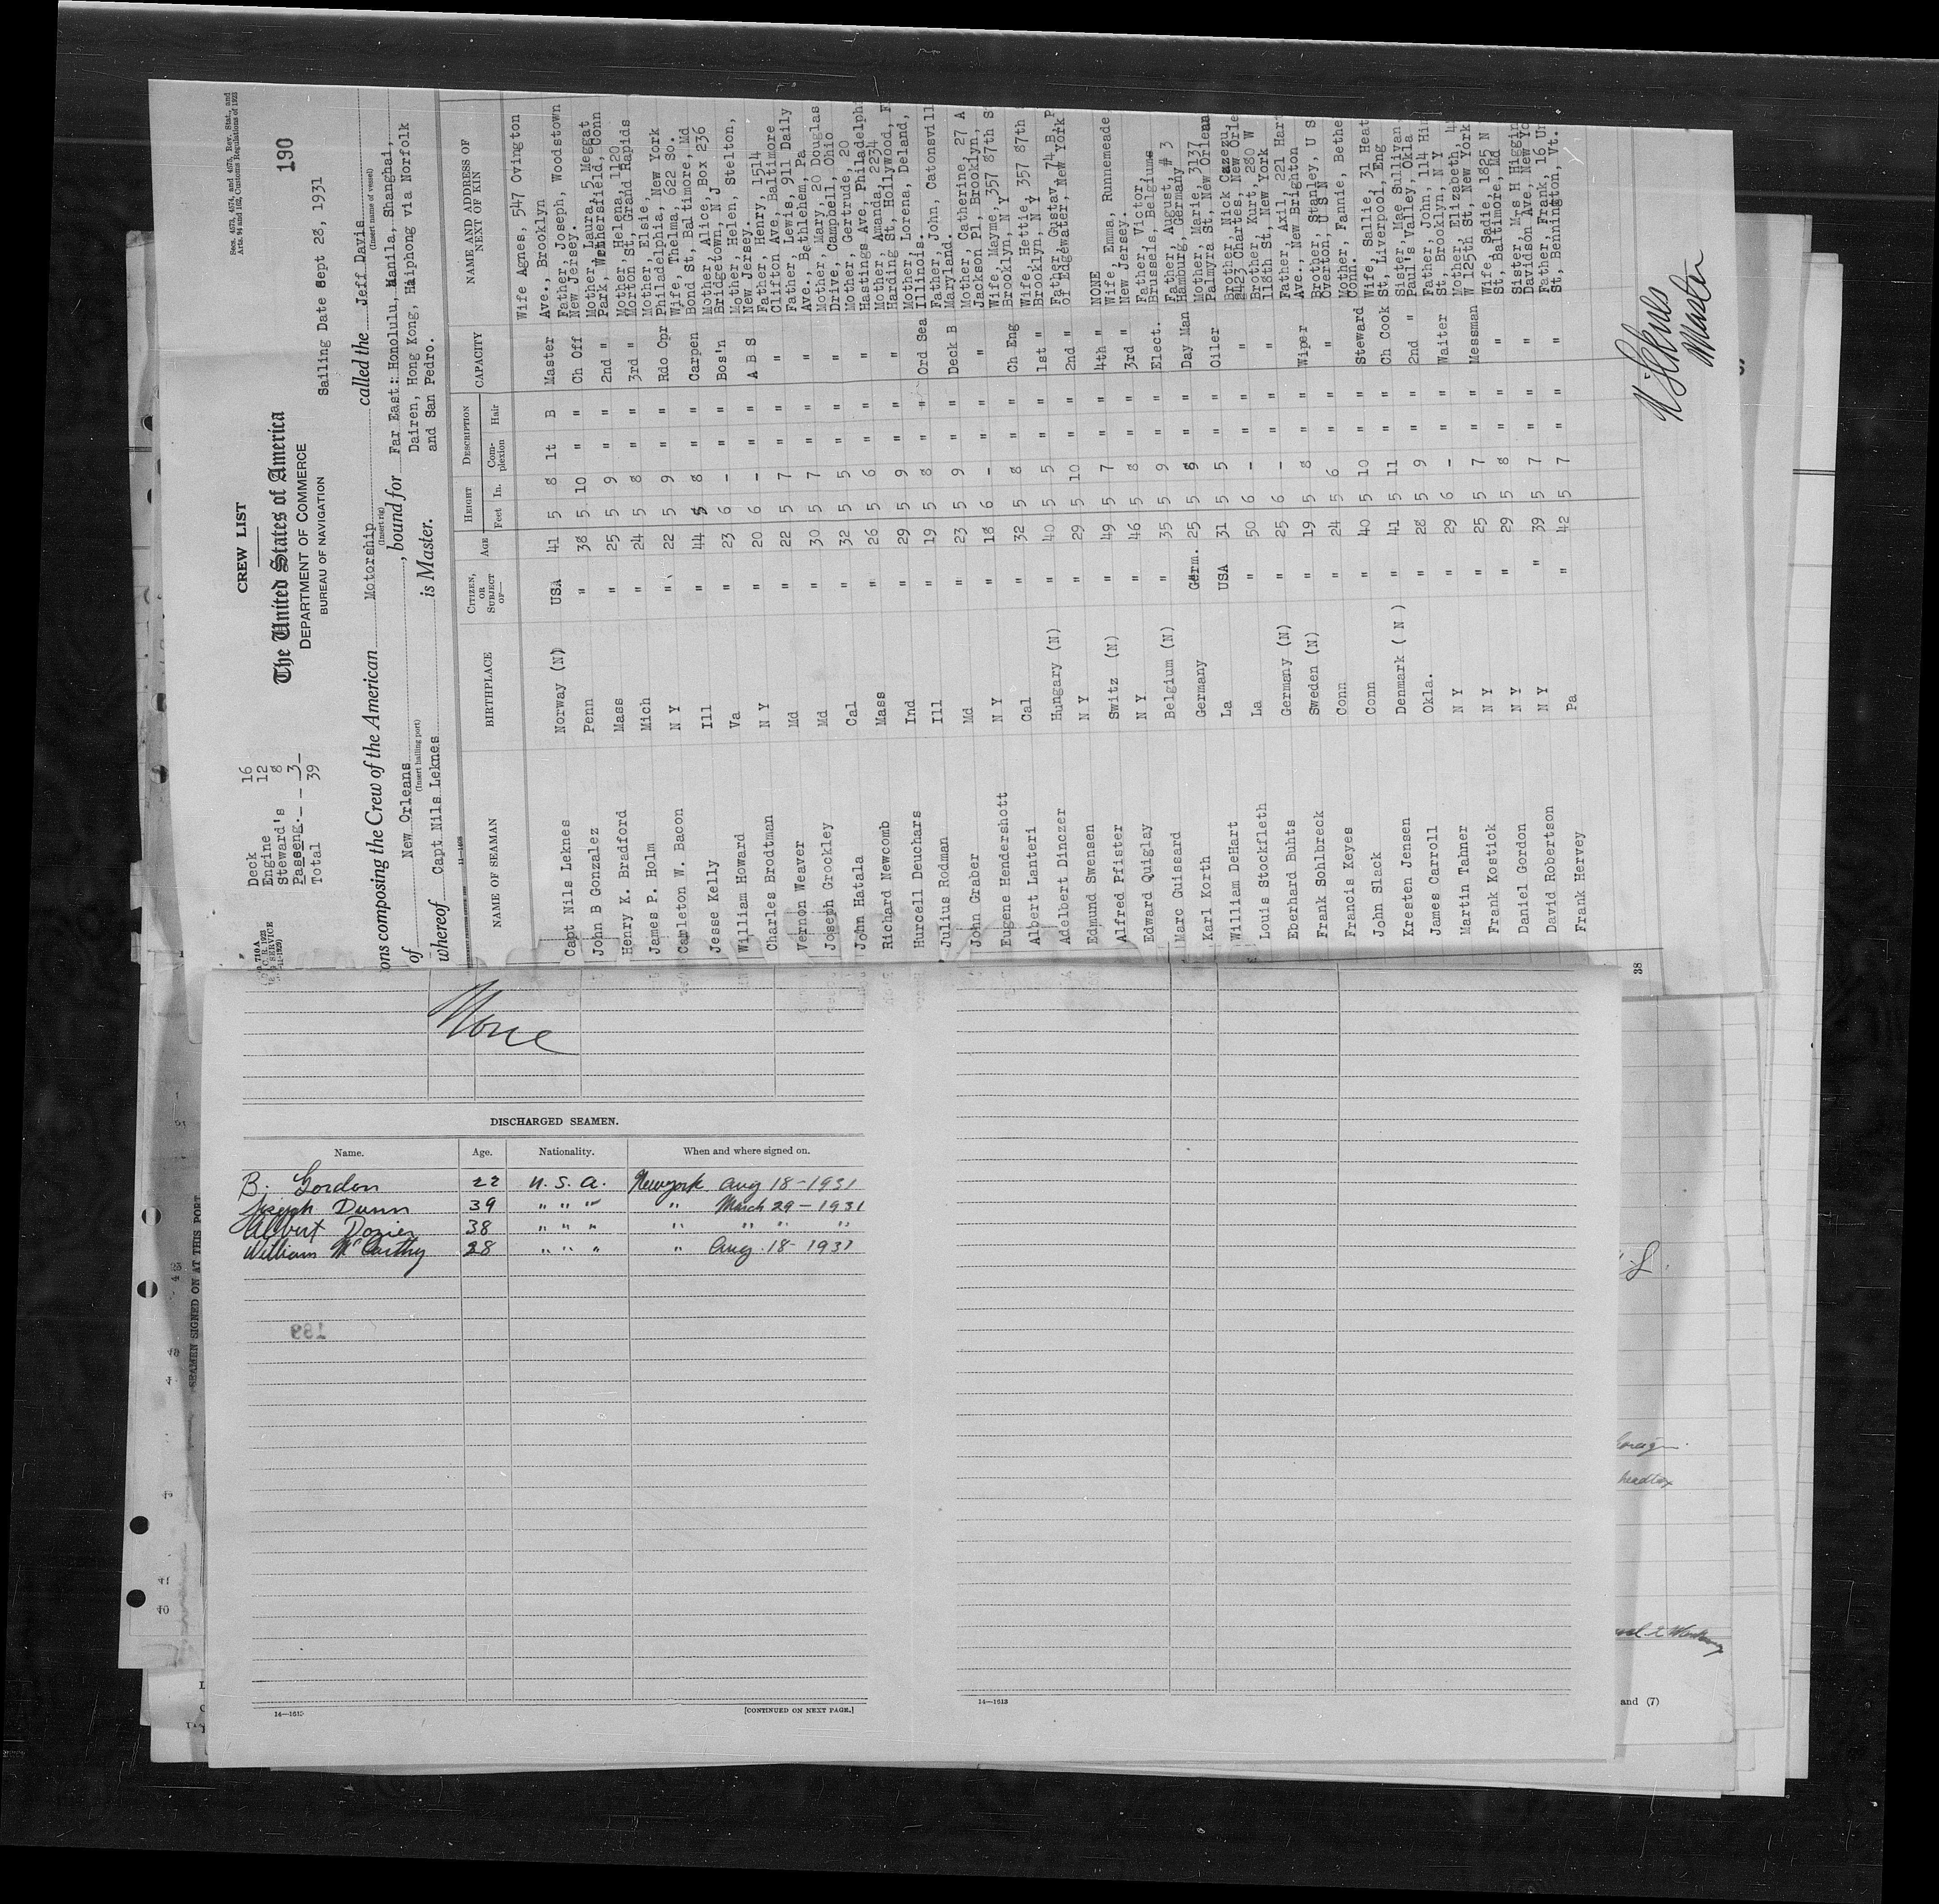 Secs. 4573, 4574, and 4575, Rev. Stat., and
Arts. 94 and 162, Customs Regulations of 1923
190
CREW LIST
The United States of America
DEPARTMENT OF COMMERCE
BUREAU OF NAVIGATION
Sailing Date Sept 28, 1931
Deck 16
Engine 12
Steward's 8
Passeng. 3
Total 39
ons composing the Crew of the American Motorship called the Jeff Davis
(Insert rig) (Insert name of vessel)
of New Orleans, bound for Far East: Honolulu, Manila, Shanghai,
(Insert hailing port)
Dairen, Hong Kong, Haiphong via Norfolk
whereof Capt Nils Leknes is Master. and San Pedro.
NAME OF SEAMAN BIRTHPLACE CITIZEN, OR SUBJECT OF— AGE HEIGHT Feet In. DESCRIPTION Complexion Hair CAPACITY NAME AND ADDRESS OF NEXT OF KIN
Wife Agnes, 547 Ovington
Capt Nils Leknes Norway (N) USA 41 5 8 lt B Master Ave., Brooklyn
John B Gonzalez Penn " 38 5 10 " " Ch Off Father, Joseph, Woodstown New Jersey.
Henry K. Bradford Mass " 25 5 9 " " 2nd " Mother, Laura, 5 Meggat Park, Wethersfield, Conn
James P. Holm Mich " 24 5 8 " " 3rd " Mother, Helena, 1120 Morton St, Grand Rapids
Carleton W. Bacon N Y " 22 5 9 " " Rdo Opr Mother, Elsie, Philadelphia, New York
Jesse Kelly Ill " 44 5 8 " " Carpen Wife, Thelma, 622 So. Bond St, Baltimore, Md
William Howard Va " 23 6 - " " Bos'n Mother, Alice, Box 236 Bridgetown, N J
Charles Brodtman N Y " 20 6 - " " A B S Mother, Helen, Stelton, New Jersey.
Vernon Weaver Md " 22 5 7 " " " Father, Henry, 1514 Clifton Ave, Baltimore
Joseph Crockley Md " 30 5 7 " " " Father, Lewis, 911 Daily Ave., Bethlehem, Pa
John Hatala Cal " 32 5 5 " " " Mother, Mary, 20 Douglas Drive, Campbell, Ohio
Richard Newcomb Mass " 26 5 6 " " " Mother, Gertrude, 20 Hastings Ave, Philadelph
Hurcell Deuchars Ind " 29 5 9 " " " Mother, Amanda, 2234 Harding St, Hollywood, F
Julius Rodman Ill " 19 5 8 " " Ord Sea Mother, Lorena, Deland, Illinois.
John Graber Md " 23 5 9 " " Deck B Father, John, Catonsvill Maryland.
Eugene Hendershott N Y " 18 6 - " " " Mother, Catherine, 27 A Jackson Pl, Brooklyn,
Albert Lanteri Cal " 32 5 8 " " Ch Eng Wife, Mayme, 357 87th S Brooklyn, N Y
Adelbert Dinczer Hungary (N) " 40 5 5 " " 1st " Wife, Hettie, 357 87th Brooklyn, N Y
Edmund Swensen N Y " 29 5 10 " " 2nd " Father, Gustav, 74 B, P of Edgewater, New York
Alfred Pfister Switz (N) " 49 5 7 " " 4th " NONE
Edward Quigley N Y " 46 5 8 " " 3rd " Wife, Emma, Runnemeade New Jersey.
Marc Guissard Belgium (N) " 35 5 9 " " Elect. Father, Victor, Brussels, Belgium
Karl Korth Germany Germ. 25 5 8 " " Day Man Father, August, # 3 Hamburg, Germany
William DeHart La USA 31 5 5 " " Oiler Mother, Marie, 3137 Palmyra St, New Orleans
Louis Stockfleth La " 50 6 - " " " Brother, Nick Cazezu 2423 Chartes, New Orle
Eberhard Buhts Germany (N) " 25 6 - " " " Brother, Kurt, 280 W 118th St, New York
Frank Sohlbreck Sweden (N) " 19 5 8 " " Wiper Father, Axil, 221 Har Ave., New Brighton
Francis Keyes Conn " 24 5 6 " " " Brother, Stanley, U S Overton, U S N
John Slack Conn " 40 5 10 " " Steward Mother, Fannie, Bethe Conn.
Kresten Jensen Denmark ( N ) " 41 5 11 " " Ch Cook Wife, Sallie, 31 Heat St, Liverpool, Eng
James Carroll Okla. " 28 5 9 " " 2nd " Sister, Mae Sullivan Paul's Valley, Okla
Martin Tahner N Y " 29 6 - " " Waiter Father, John, 114 Hi St, Brooklyn, N Y
Frank Kostick N Y " 25 5 7 " " Messman Mother, Elizabeth, 4 W 125th St, New York
Daniel Gordon N Y " 29 5 8 " " " Wife, Sadie, 1825 N St, Baltimore, Md
David Robertson N Y " 39 5 7 " " " Sister, Mrs H Higgin Davidson Ave, New Yo
Frank Hervey Pa " 42 5 7 " " " Father, Frank, 16 Un St, Bennington, Vt.
38
N Leknes
Master
None
DISCHARGED SEAMEN.
Name. Age. Nationality. When and where signed on.
B. Gordon 22 U. S. A. New york Aug 18-1931
Joseph Dunn 39 " " " " March 29-1931
Albert Dozier 38 " " " " " " "
William McCarthy 28 " " " " Aug. 18-1931
189
14—1613 [CONTINUED ON NEXT PAGE.]
14—1613
SEAMEN SIGNED ON AT THIS PORT
and (7)